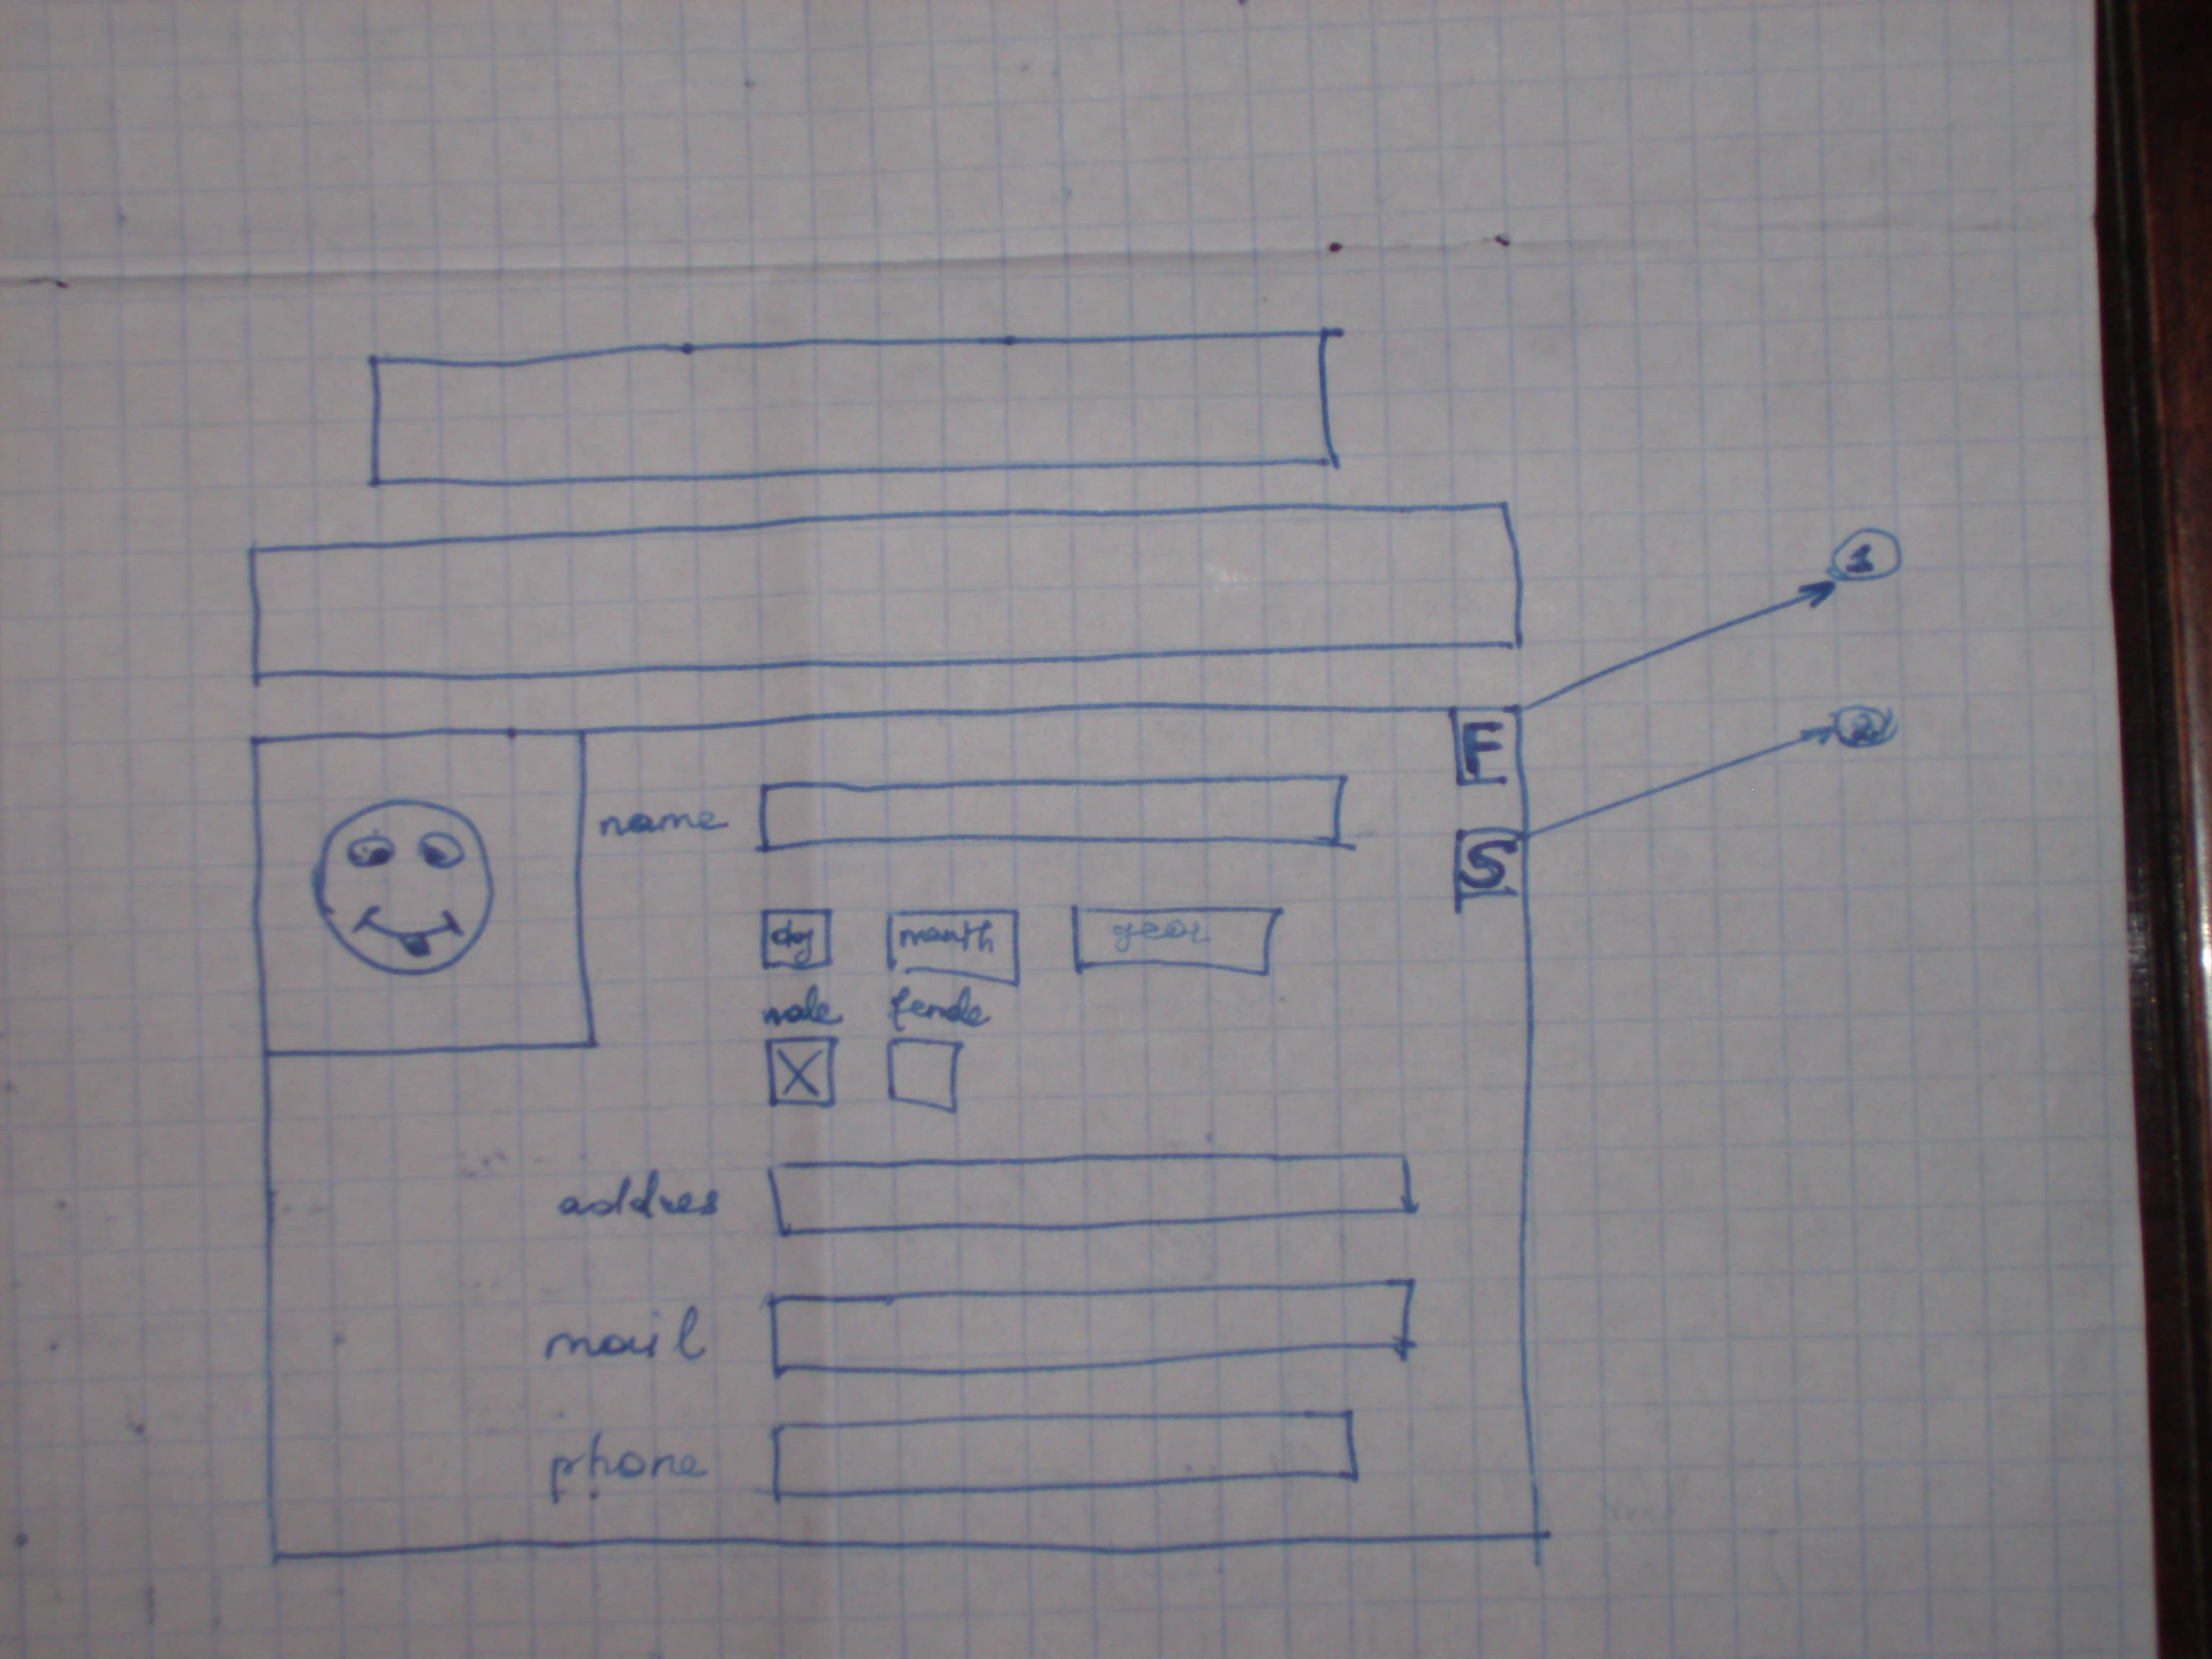 1
F
2
name
S
day month year
male female
X
addres
mail
phone